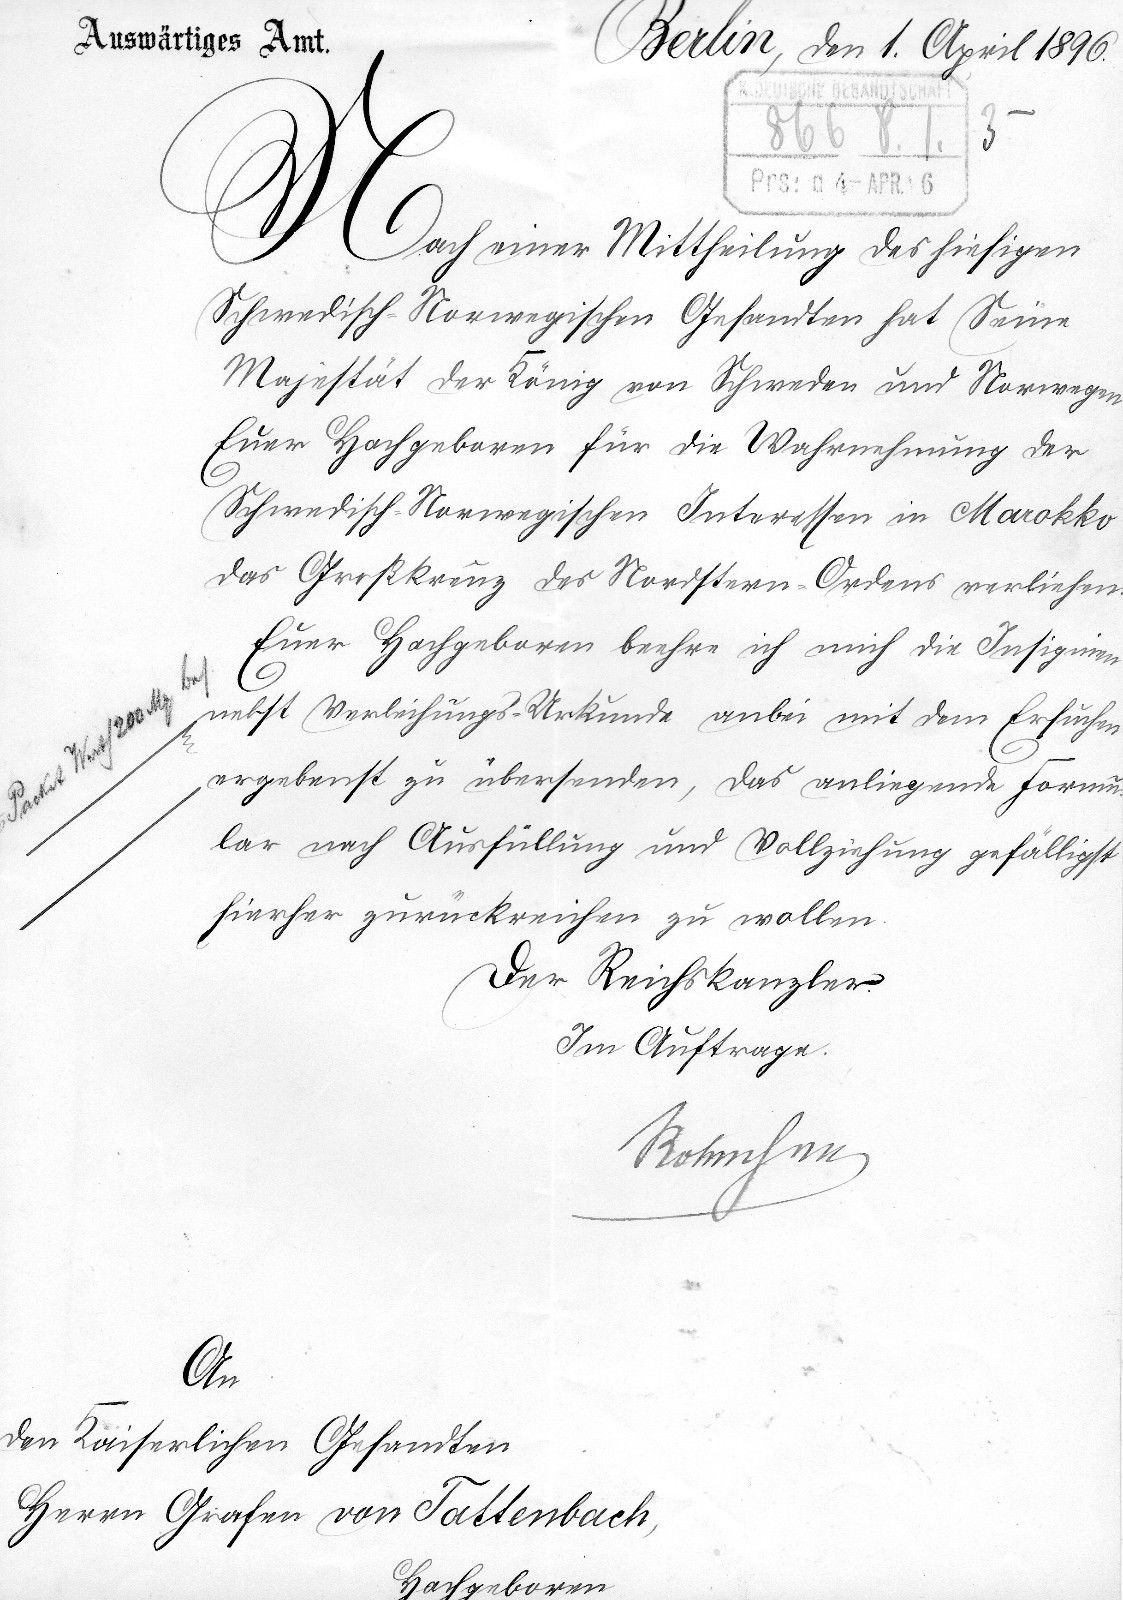 Auswärtiges Amt.
Berlin, den 1. April 1896.
K. DEUTSCHE GESANDTSCHAFT
866 8. 1. 3
Prs: d 4 - APR. 6
Nach einer Mittheilung des hiesigen
Schwedisch-Norwegischen Gesandten hat Seine
Majestät der König von Schweden und Norwegen
Euer Hochgeboren für die Wahrnehmung der
Schwedisch-Norwegischen Interessen in Marokko
das Großkreuz des Nordstern-Ordens verliehen.
Euer Hochgeboren beehre ich mich die Insignien
nebst Verleihungs-Urkunde anbei mit dem Ersuchen
ergebenst zu übersenden, das anliegende Formu-
lar nach Ausfüllung und Vollziehung gefälligst
hierher zurückreichen zu wollen.
Der Reichskanzler.
Im Auftrage.
Packet Werth 200 Mk
An
den Kaiserlichen Gesandten
Herrn Grafen von Tattenbach,
Hochgeboren